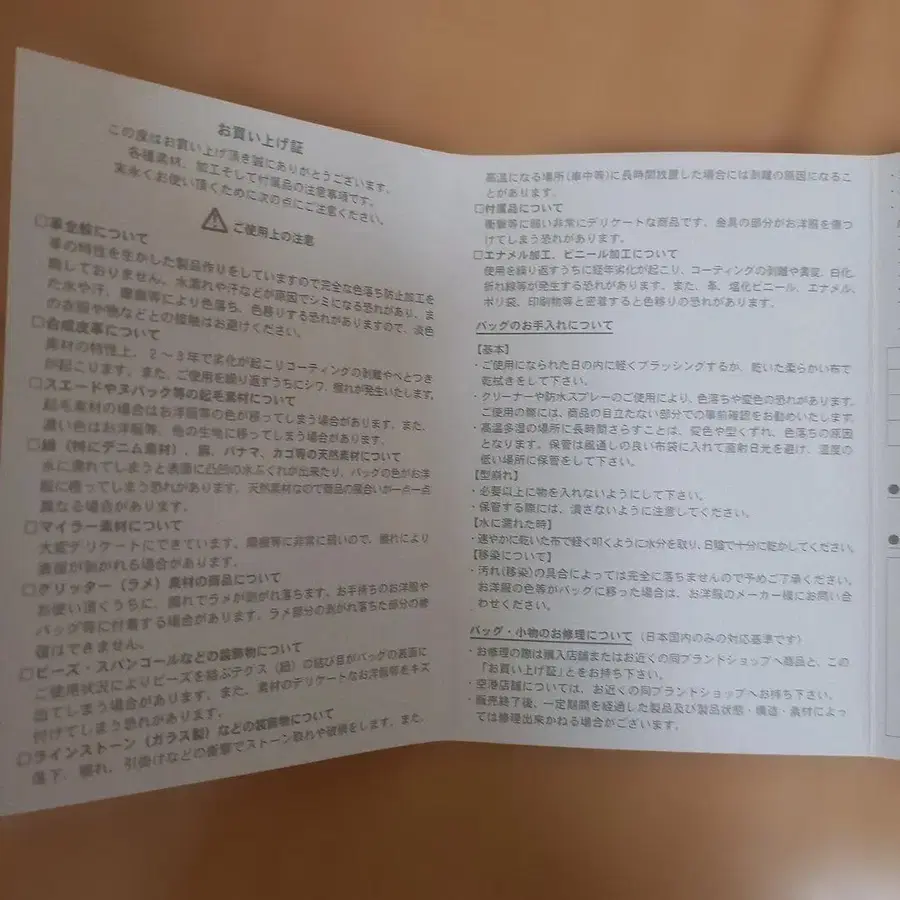 お買い上げ証
この度はお買い上げ頂き誠にありがとうございます。
各種素材、加工そして付属品の注意事項です。
末永くお使い頂くために次の点にご注意ください。
ご使用上の注意
□革全般について
革の特性を生かした製品作りをしていますので完全な色落ち防止加工を
施しておりません。水濡れや汗などが原因でシミになる恐れがあり、ま
た水や汗、摩擦等により色落ち、色移りする恐れがありますので、淡色
の衣服や物などとの接触はお避けください。
□合成皮革について
素材の特性上、2〜3年で劣化が起こりコーティングの剥離やべとつき
が起こります。また、ご使用を繰り返すうちにシワ、擦れが発生いたします。
□スエードやヌバック等の起毛素材について
起毛素材の場合はお洋服等の色が移ってしまう場合があります。また、
濃い色はお洋服等、他の生地に移ってしまう場合があります。
□綿(特にデニム素材)、麻、パナマ、カゴ等の天然素材について
水に濡れてしまうと表面に凸凹の水ぶくれが出来たり、バッグの色がお洋
服に移ってしまう恐れがあります。天然素材なので商品の風合いが一点一点
異なる場合があります。
□マイラー素材について
大変デリケートにできています。摩擦等に非常に弱いので、擦れにより
表面が剥がれる場合があります。
□グリッター(ラメ)素材の商品について
お使い頂くうちに、擦れでラメが剥がれ落ちます。お手持ちのお洋服や
バッグ等に付着する場合があります。ラメ部分の剥がれ落ちた部分の修
復はできません。
□ビーズ・スパンコールなどの装飾物について
ご使用状況によりビーズを結ぶテグス(紐)の結び目がバッグの表面に
出てしまう場合があります。また、素材のデリケートなお洋服等をキズ
付けてしまう恐れがあります。
□ラインストーン(ガラス製)などの装飾物について
落下、擦れ、引掛けなどの衝撃でストーン取れや破損をします。また、
高温になる場所(車中等)に長時間放置した場合には剥離の原因になるこ
とがあります。
□付属品について
衝撃等に弱い非常にデリケートな商品です。金具の部分がお洋服を傷つ
けてしまう恐れがあります。
□エナメル加工、ビニール加工について
使用を繰り返すうちに経年劣化が起こり、コーティングの剥離や黄変、白化、
折れ線等が発生する恐れがあります。また、革、塩化ビニール、エナメル、
ポリ袋、印刷物等と密着すると色移りの恐れがあります。
バッグのお手入れについて
【基本】
・ご使用になられた日の内に軽くブラッシングするか、乾いた柔らかい布で
乾拭きをして下さい。
・クリーナーや防水スプレーのご使用により、色落ちや変色の恐れがあります。
ご使用の際には、商品の目立たない部分での事前確認をお勧めいたします。
・高温多湿の場所に長時間さらすことは、変色や型くずれ、色落ちの原因
となります。保管は風通しの良い布袋に入れて直射日光を避け、湿度の
低い場所に保管をして下さい。
【型崩れ】
・必要以上に物を入れないようにして下さい。
・保管する際には、潰さないように注意してください。
【水に濡れた時】
・速やかに乾いた布で軽く叩くように水分を取り、日陰で十分に乾かしてください。
【移染について】
・汚れ(移染)の具合によっては完全に落ちませんので予めご了承ください。
お洋服の色等がバッグに移った場合は、お洋服のメーカー様にお問い合
わせください。
バッグ・小物のお修理について(日本国内のみの対応基準です)
・お修理の際は購入店舗またはお近くの同ブランドショップへ商品と、この
「お買い上げ証」とをお持ち下さい。
・空港店舗については、お近くの同ブランドショップへお持ち下さい。
・販売終了後、一定期間を経過した製品及び製品状態・構造・素材によっ
ては修理出来かねる場合がございます。